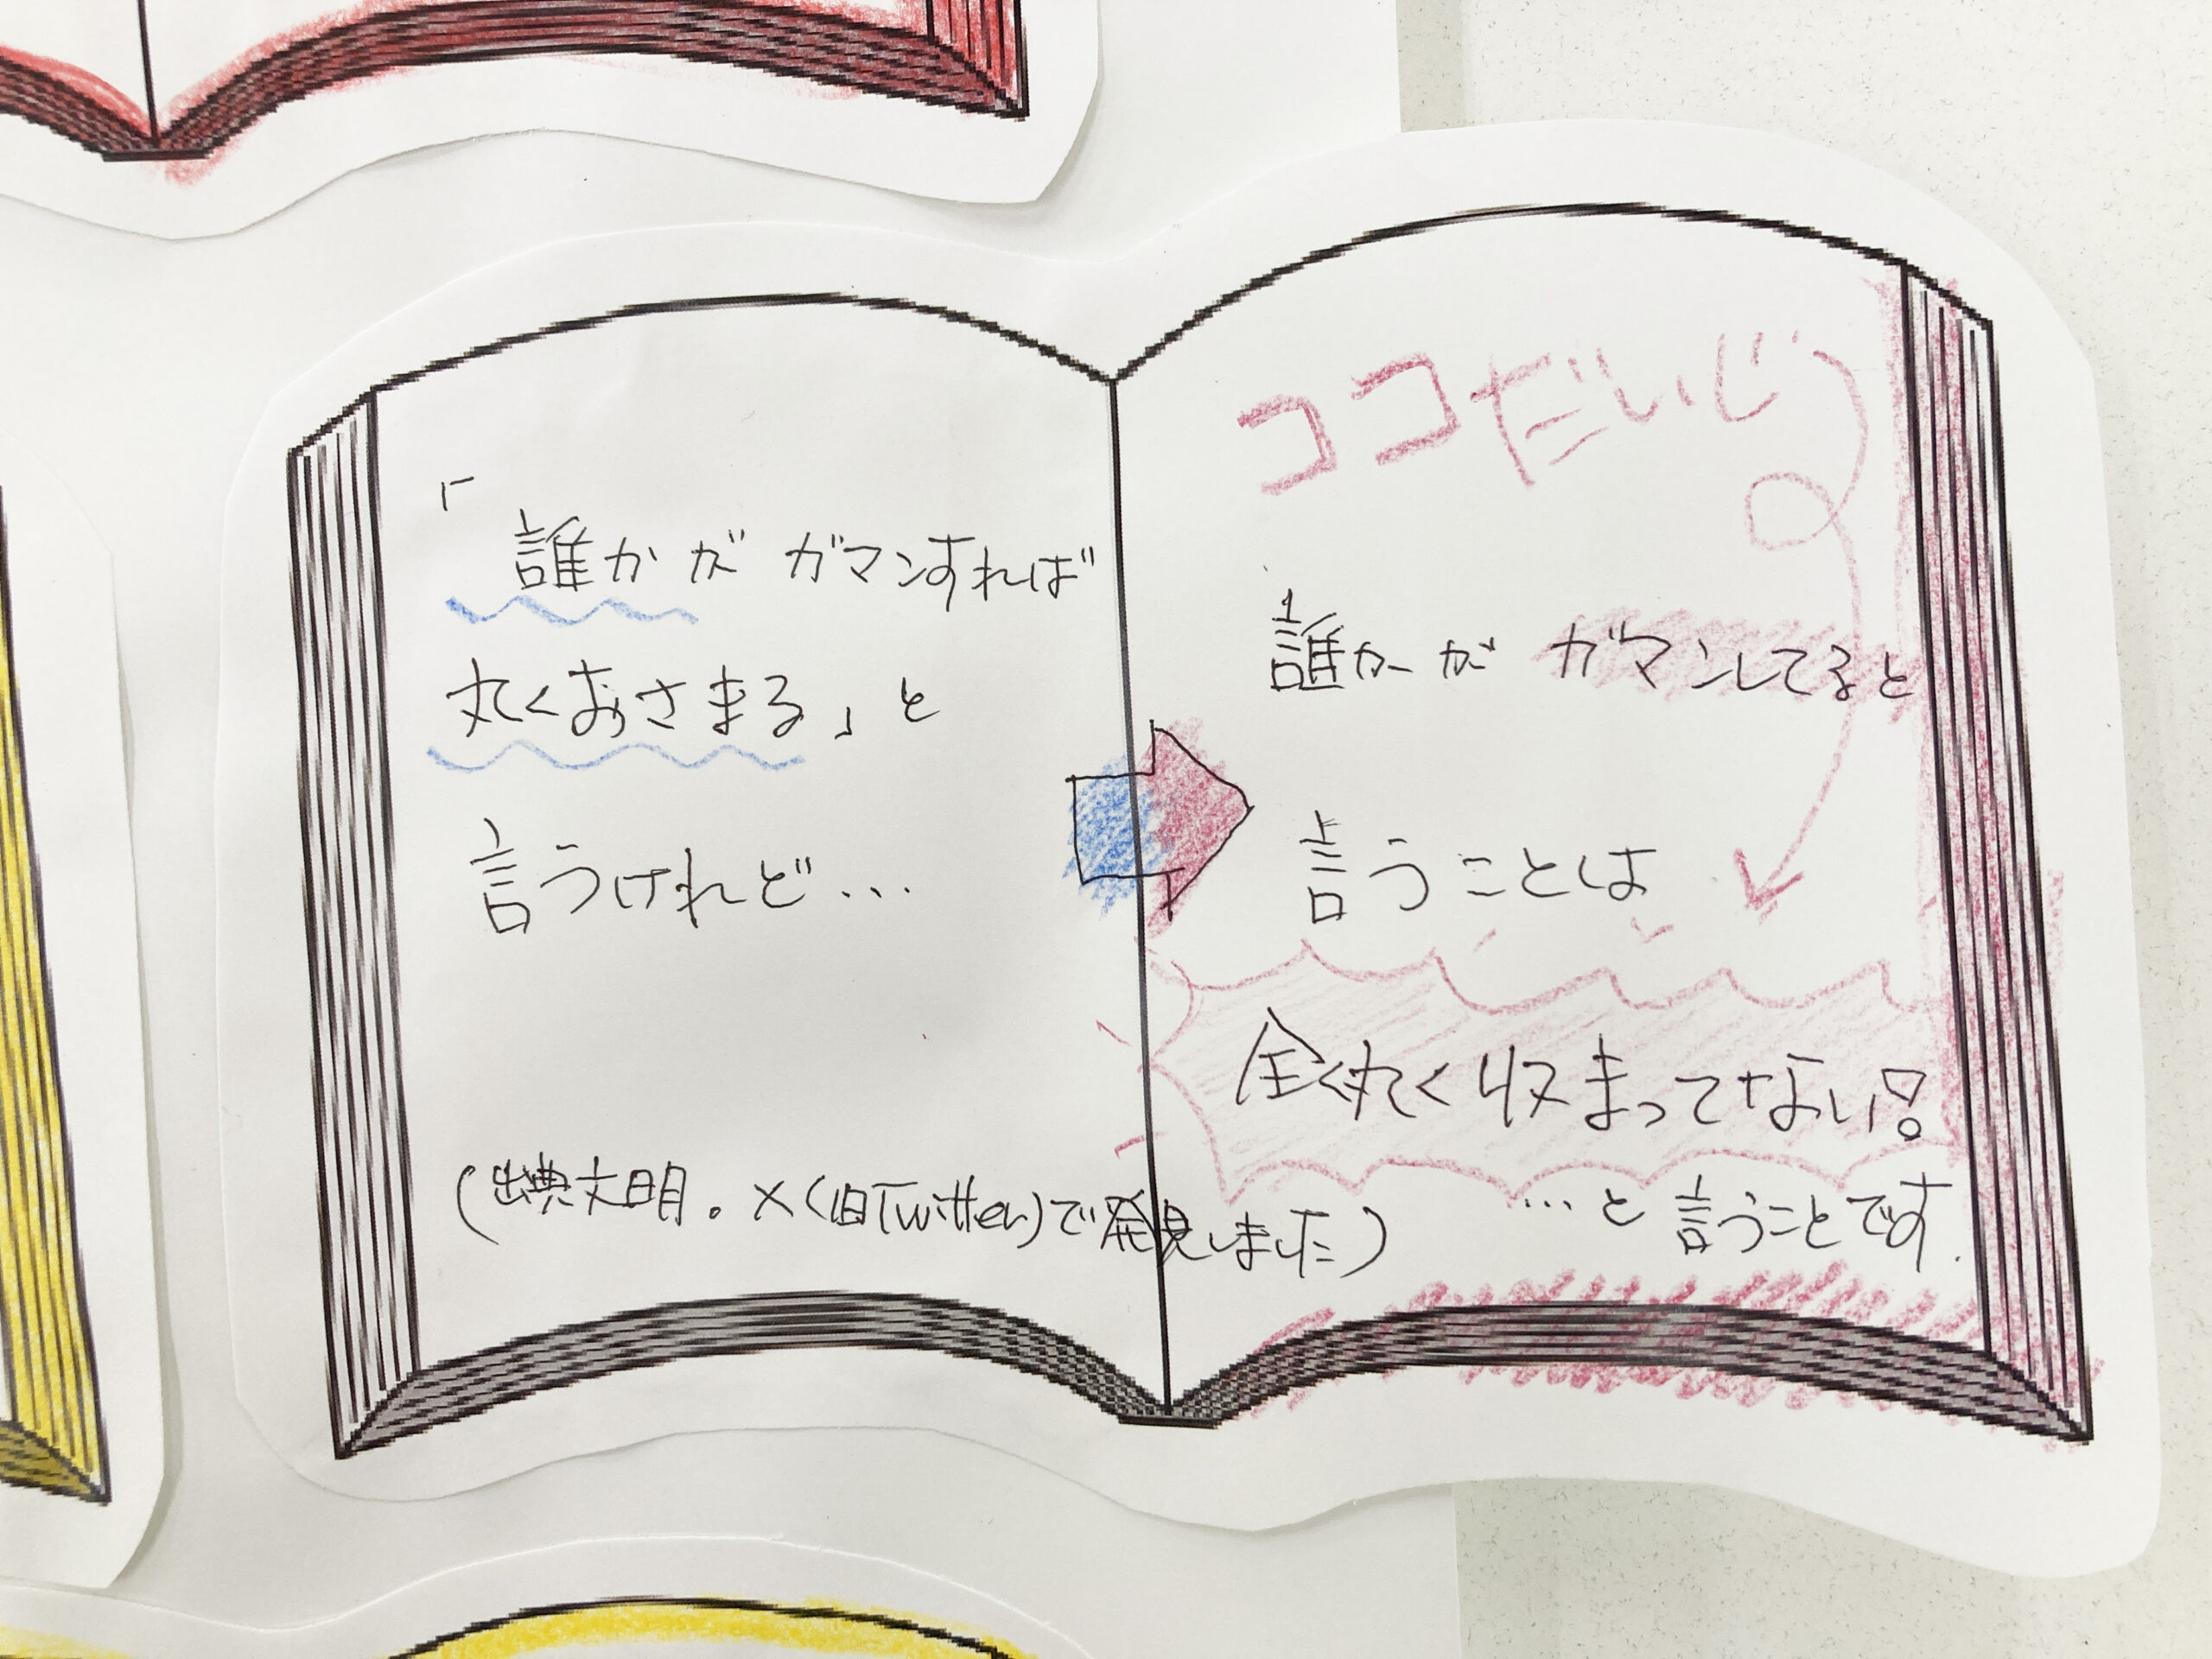 「誰かが ガマンすれば
丸くおさまる」と
言うけれど…
(出典文明。X(旧Twitter)で発見しました)
ココだいじ
誰かが ガマンしてると
言うことは
全く丸く収まってない!
…と言うことです.